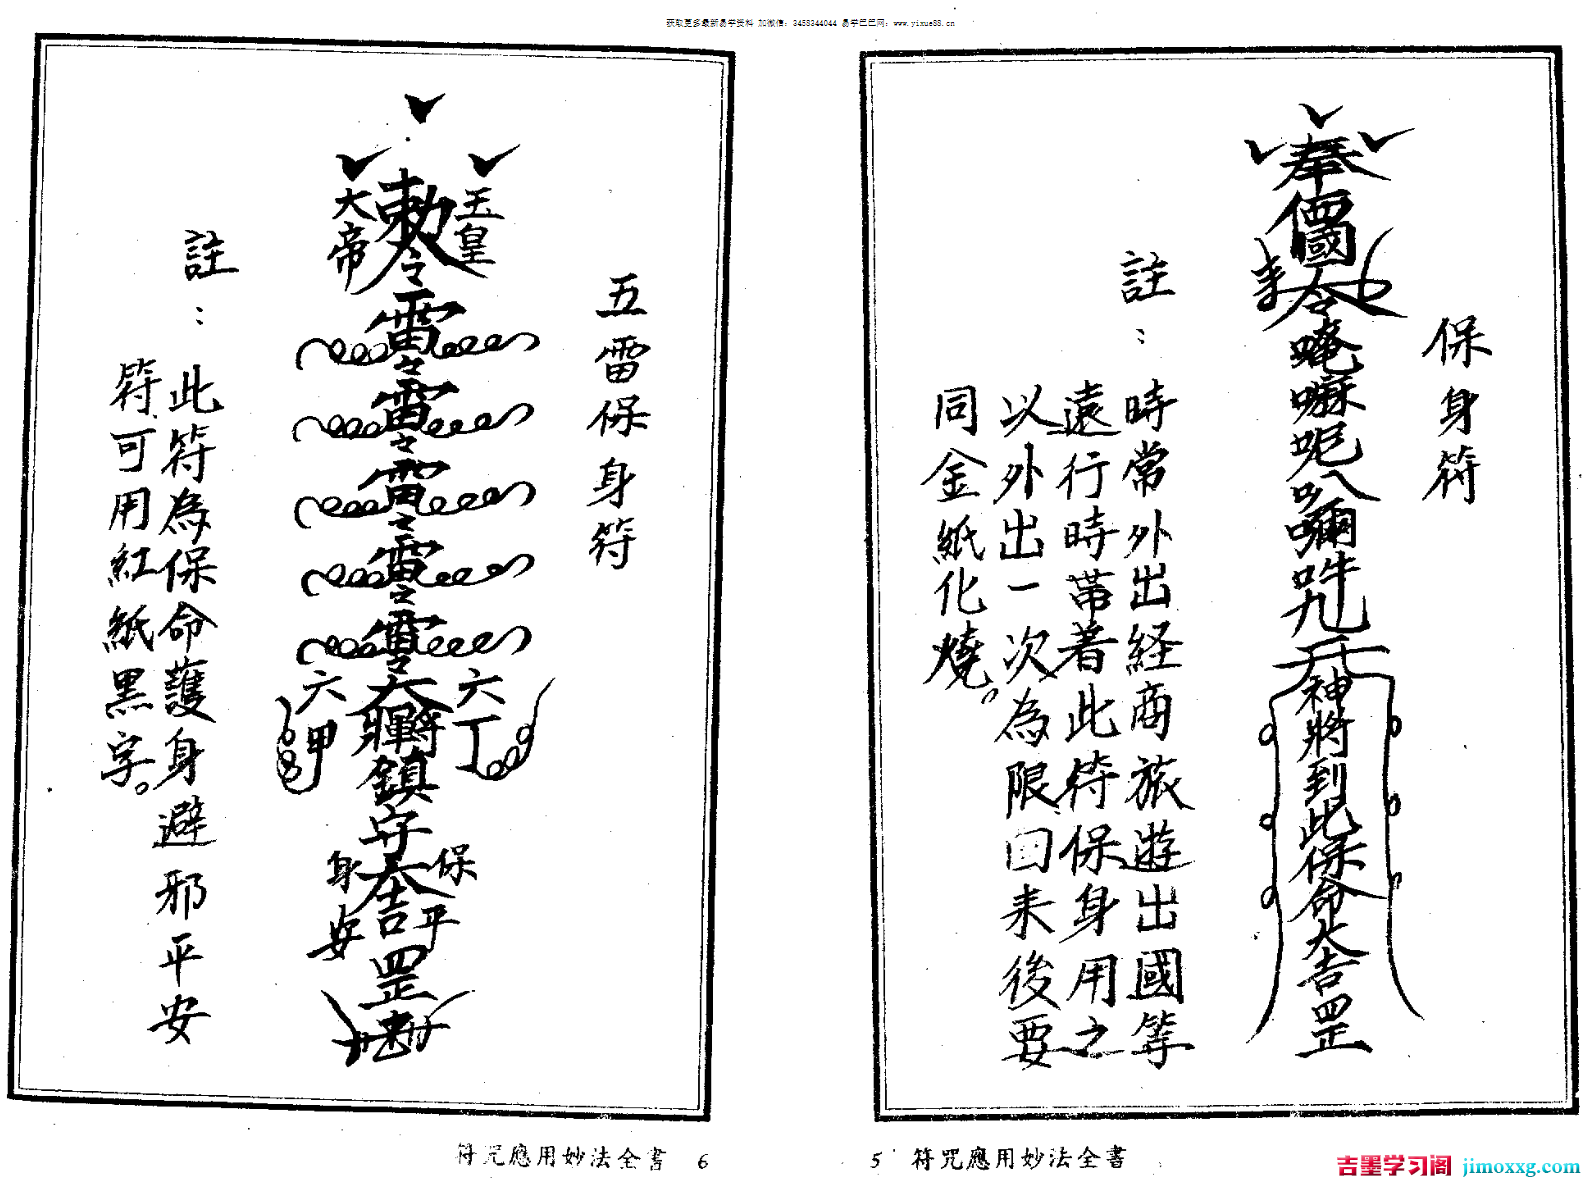 获取更多最新易学资料 加微信：3458344044 易学巴巴网：www.yixue88.cn
保身符
奉
令
神將到此保命大吉罡
註：時常外出経商旅遊出國等
遠行時帶着此符保身用之
以外出一次為限回來後要
同金紙化燒。
5 符咒應用妙法全書
五雷保身符
玉皇
勅令
大帝
雷雷雷雷雷
六丁
六甲
鎮守
保身
平安
大吉
罡
註：此符為保命護身避邪平安
符可用紅紙黑字。
符咒應用妙法全書 6
吉墨学习阁 jimoxxg.com